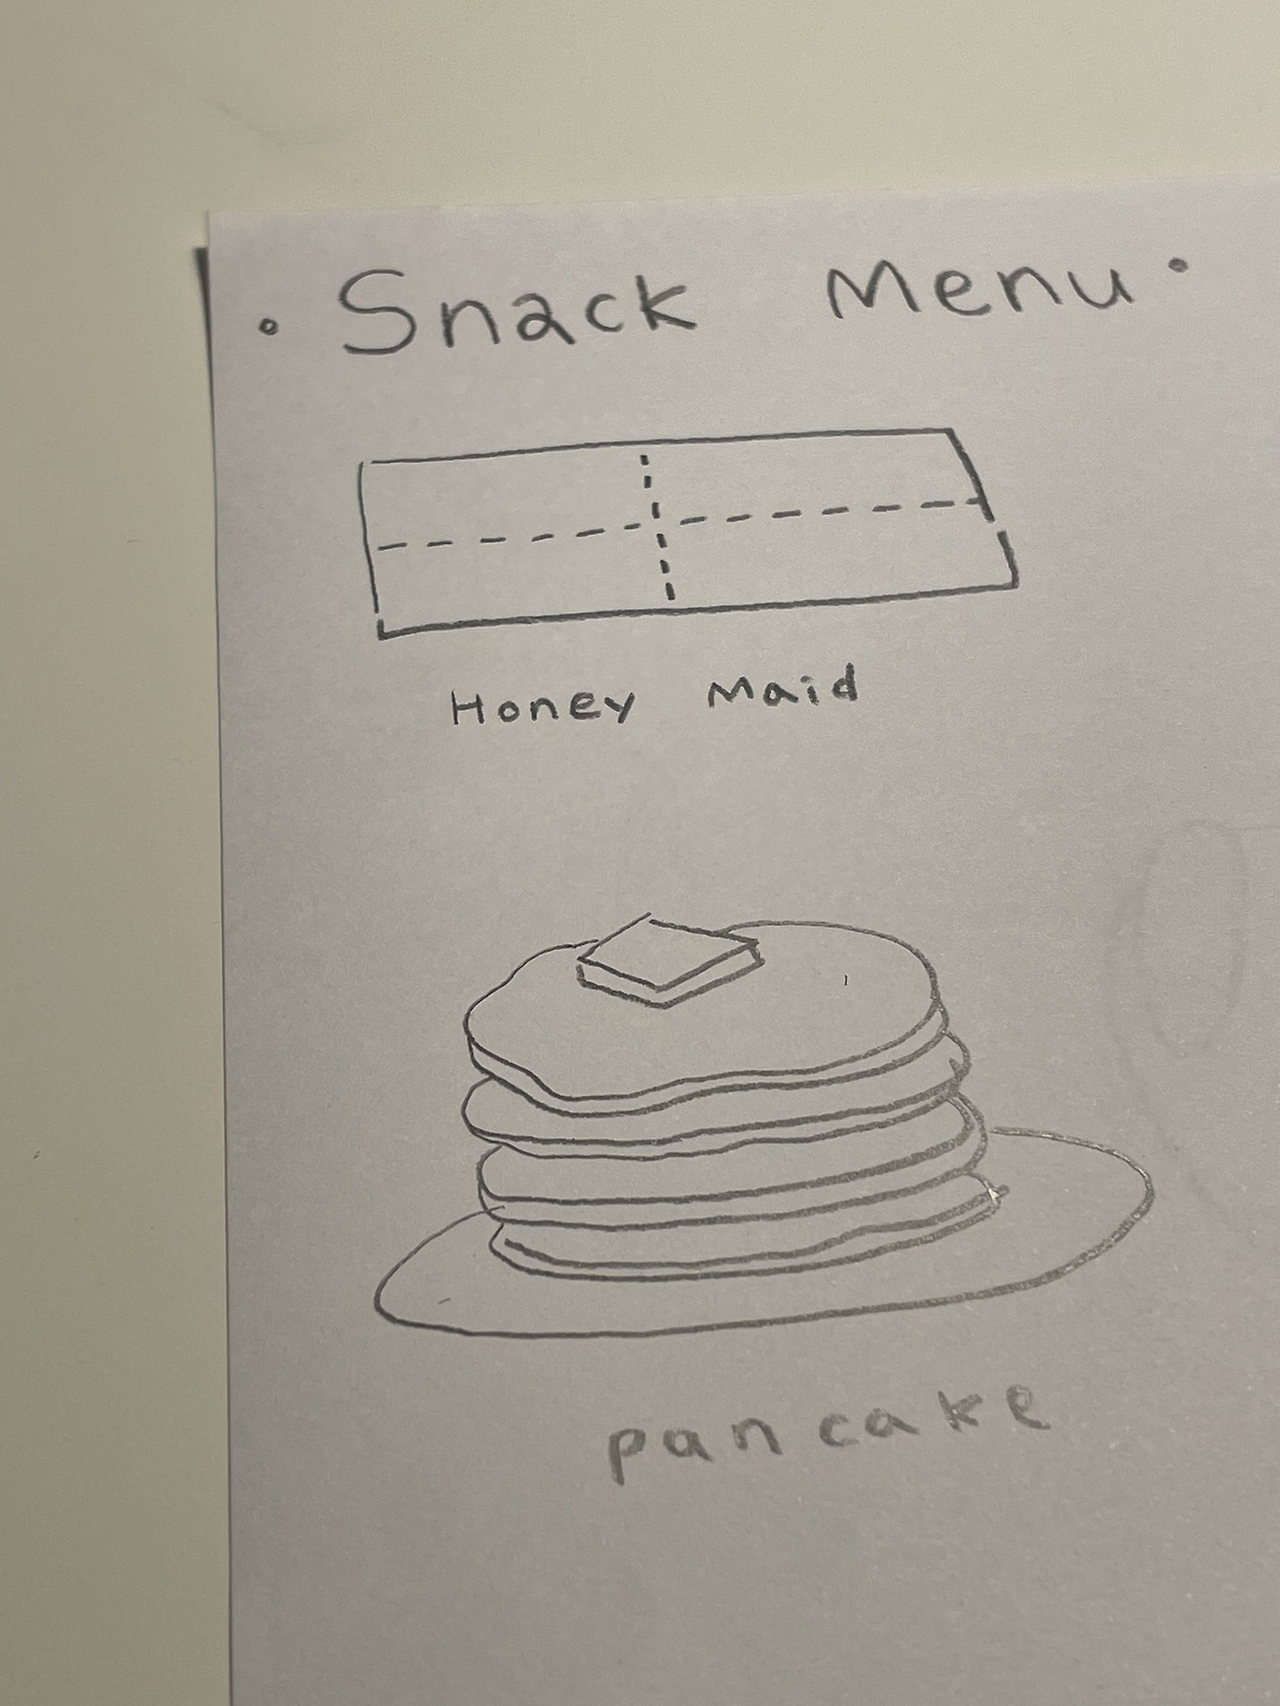 • Snack Menu •
Honey Maid
pancake